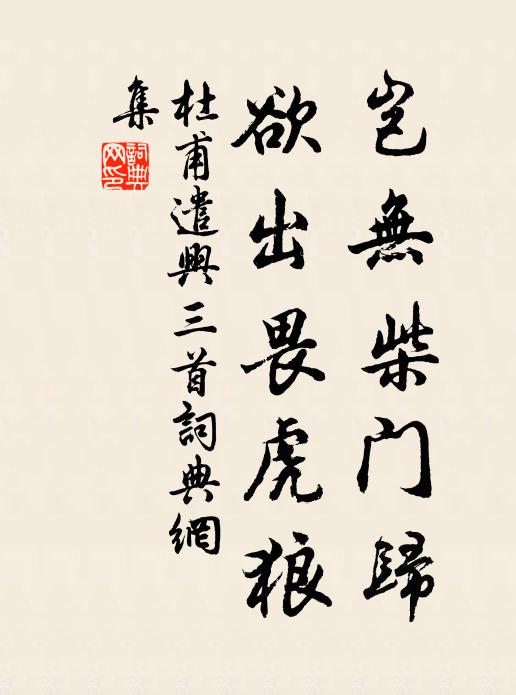 豈無柴门歸
欲出畏虎狼
杜甫遣興三首詞典網
集
詞典
网印